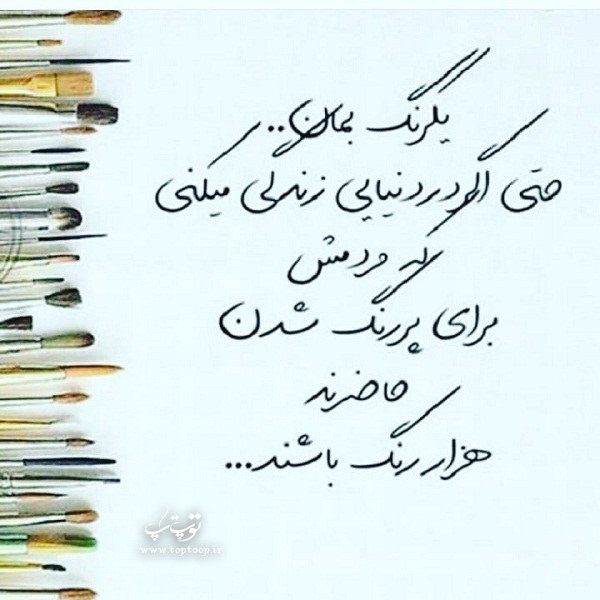 یکرنگ بمان..
حتی اگر در دنیایی زندگی میکنی
که مردمش
برای پررنگ شدن
حاضرند
هزار رنگ باشند...
توپ تاپ
www.toptoop.ir